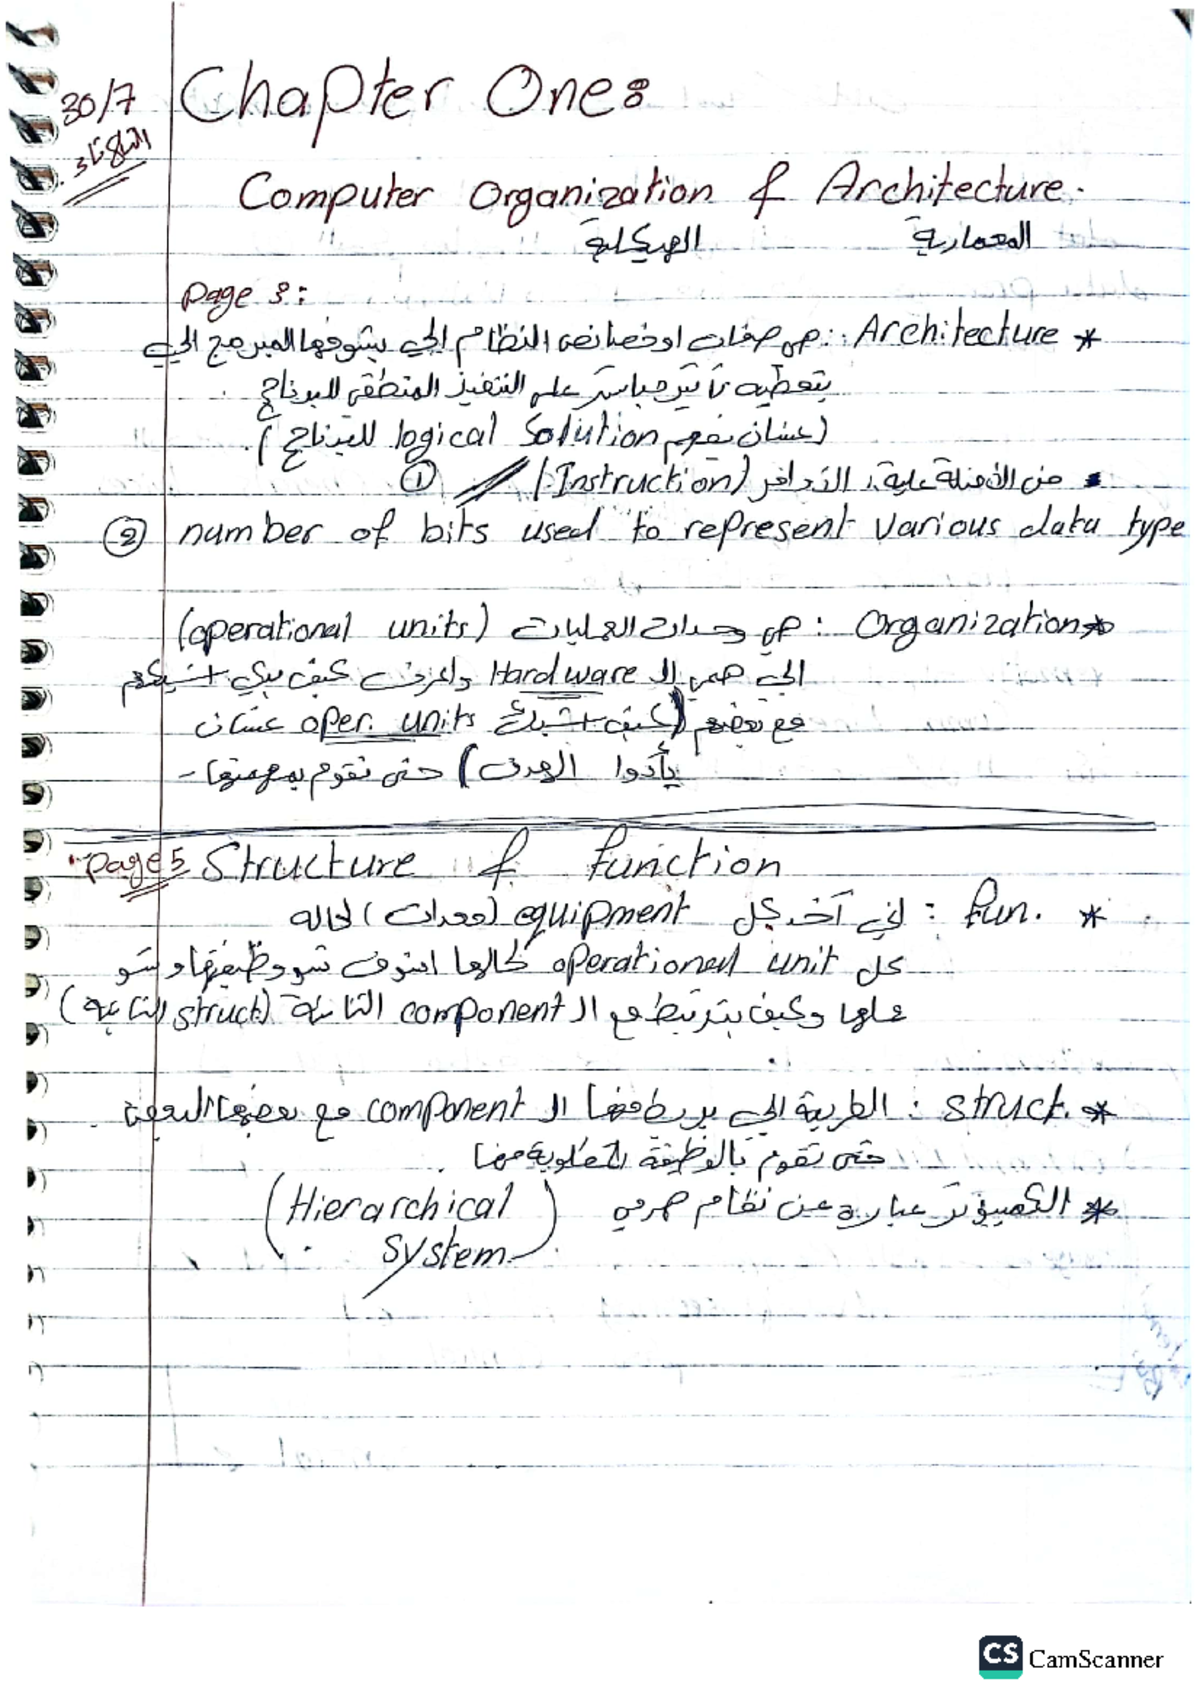 30/7
الثلاثاء
Chapter One:
Computer Organization & Architecture.
الهيكلة المعمارية
Page 3:
* Architecture: هي صفات او خصائص النظام الي بشوفها المبرمج الي
بتعطيه تأثير مباشر على التنفيذ المنطقي للبرنامج.
(عشان يفهم logical Solution للبرنامج).
• من الأمثلة عليه: الأوامر (Instruction) ①
② number of bits used to represent various data type
* Organization: هي وحدات العمليات (operational units)
الي هي الـ Hardware واعرف كيف
مع بعضهم (كيف oper. units عشان
يأدوا الهدف) حتى تقوم بمهمتها-
page 5 Structure & function
* fun. : اني آخد كل equipment (معدات) لحاله
كل operational unit لحالها اشوف شو وظيفتها و شو
عملها وكيف بترتبط مع الـ component الثانية (struct الثانية)
* struct. : الطريقة الي بربط فيها الـ component مع بعضها البعض
حتى تقوم بالوظيفة المطلوبة منها.
* الكمبيوتر عبارة عن نظام هرمي (Hierarchical
system)
CS CamScanner